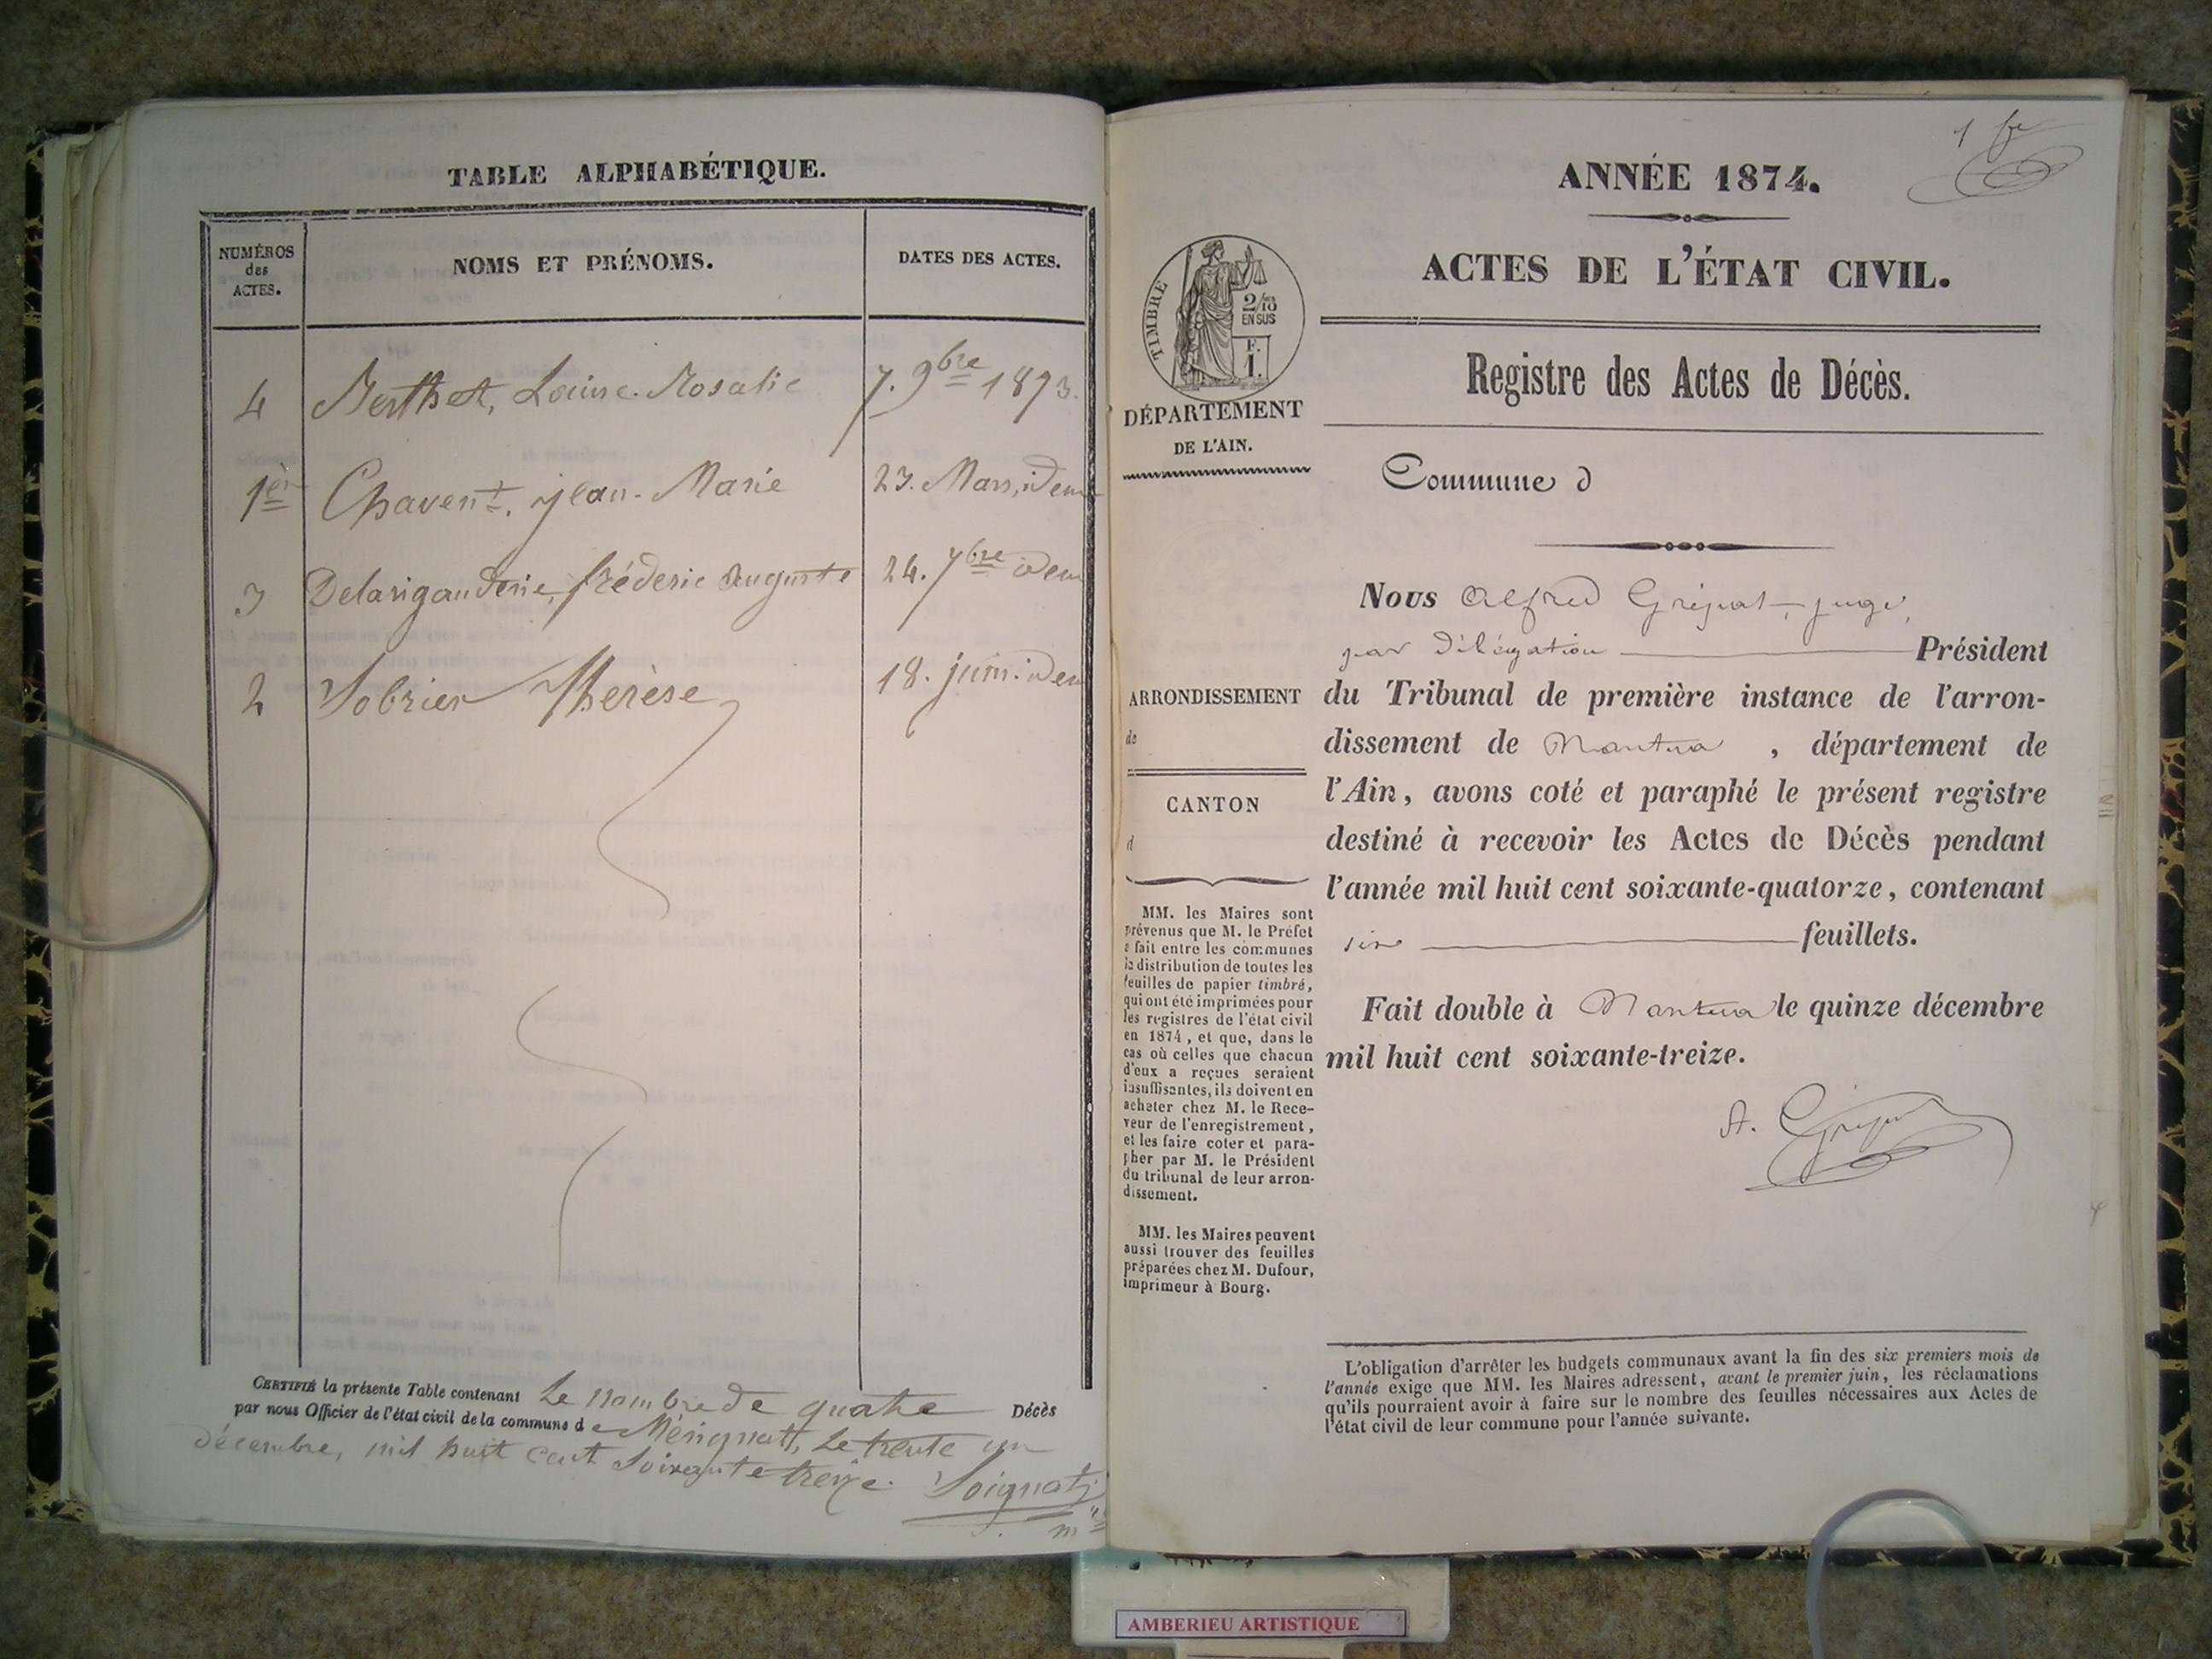 TABLE ALPHABÉTIQUE.
NUMÉROS
des
ACTES.
NOMS ET PRÉNOMS.
DATES DES ACTES.
4 Berthet, Louise-Rosalie 7. 9bre 1873.
1er Chavent, jean-Marie 23. Mars, idem
3 Delarigauderie, frédéric Auguste 24. 7bre idem
2 Sobrier Thérèse 18. juin. idem
CERTIFIÉ la présente Table contenant Le nombre de quatre Décès
par nous Officier de l'état civil de la commune de Mérignat, Le trente un
décembre, mil huit cent soixante treize. Soignat
1 fre
ANNÉE 1874.
ACTES DE L'ÉTAT CIVIL.
Registre des Actes de Décès.
TIMBRE
2/10
EN SUS
F.
1.
DÉPARTEMENT
DE L'AIN.
Commune d
Nous Alfred juge,
par délégation Président
du Tribunal de première instance de l'arron-
dissement de Nantua, département de
l'Ain, avons coté et paraphé le présent registre
destiné à recevoir les Actes de Décès pendant
l'année mil huit cent soixante-quatorze, contenant
six feuillets.
Fait double à Nantua le quinze décembre
mil huit cent soixante-treize.
A.
ARRONDISSEMENT
de
CANTON
d
MM. les Maires sont
prévenus que M. le Préfet
a fait entre les communes
la distribution de toutes les
feuilles de papier timbré,
qui ont été imprimées pour
les registres de l'état civil
en 1874, et que, dans le
cas où celles que chacun
d'eux a reçues seraient
insuffisantes, ils doivent en
acheter chez M. le Rece-
veur de l'enregistrement,
et les faire coter et para-
pher par M. le Président
du tribunal de leur arron-
dissement.
MM. les Maires peuvent
aussi trouver des feuilles
préparées chez M. Dufour,
imprimeur à Bourg.
L'obligation d'arrêter les budgets communaux avant la fin des six premiers mois de
l'année exige que MM. les Maires adressent, avant le premier juin, les réclamations
qu'ils pourraient avoir à faire sur le nombre des feuilles nécessaires aux Actes de
l'état civil de leur commune pour l'année suivante.
AMBERIEU ARTISTIQUE